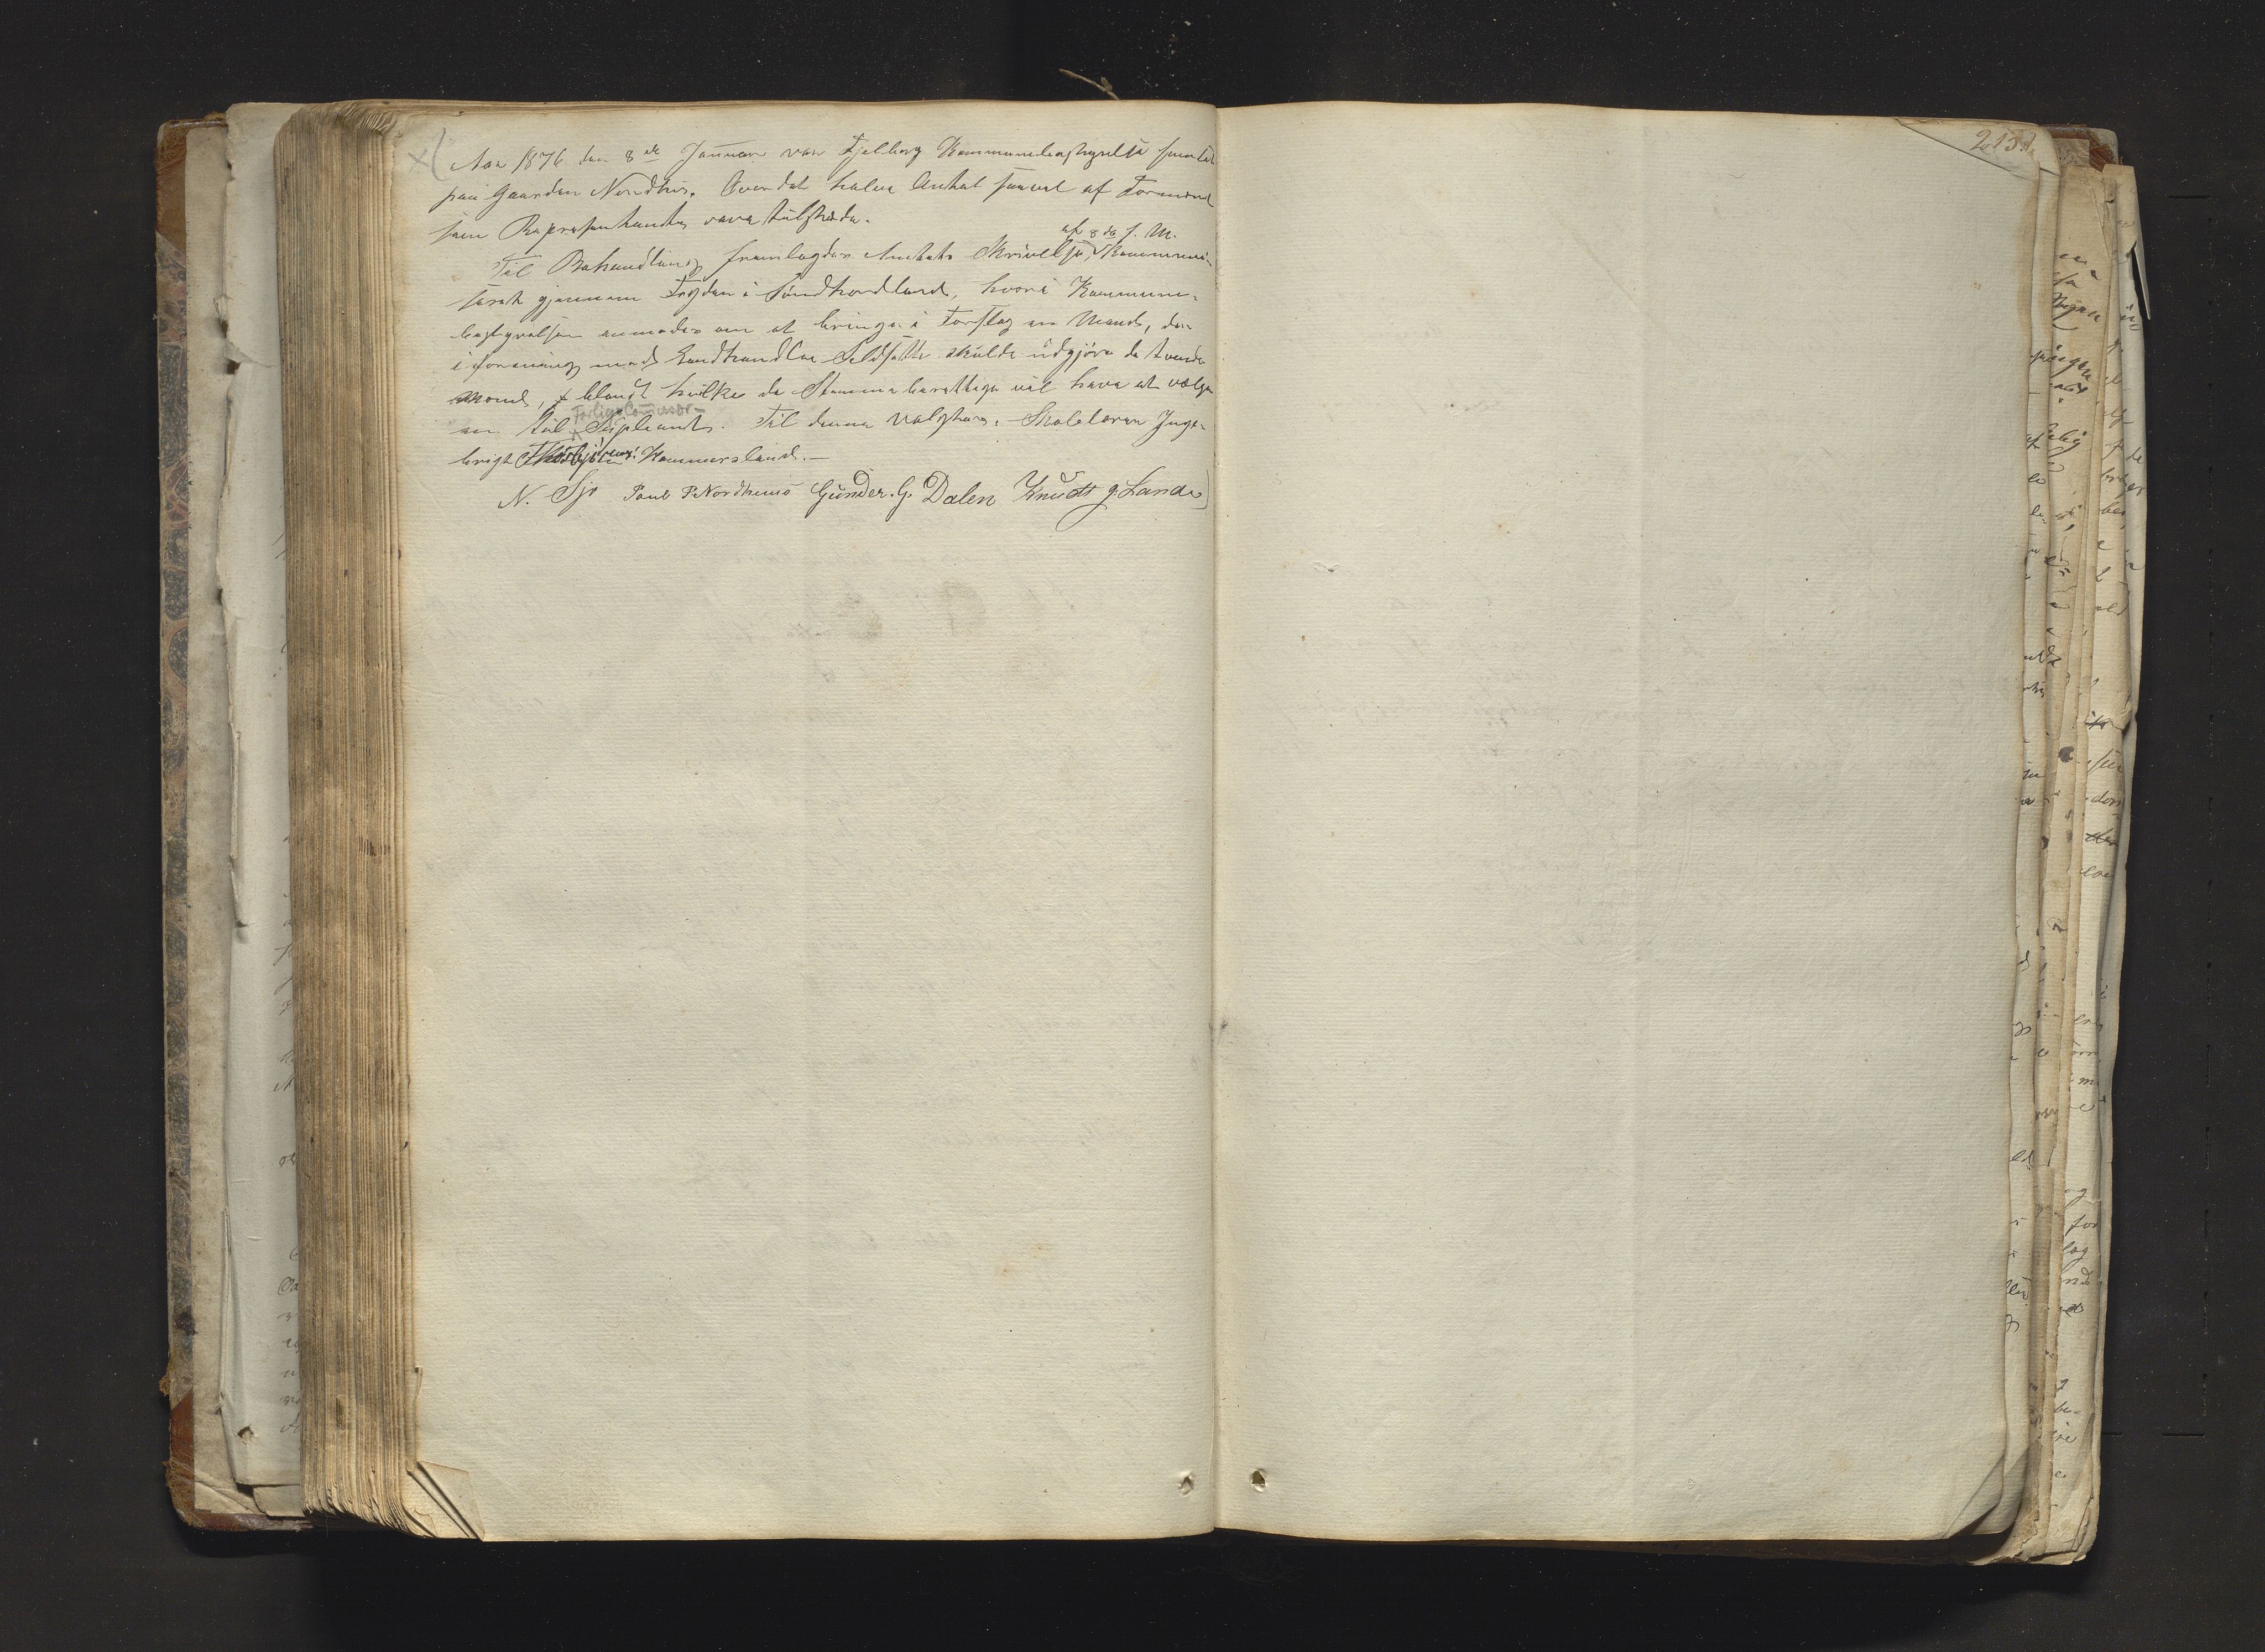 Aar 1876 den 8de Januar var Fjelberg Kommunebestyrelse samlet
paa Gaarden Nordhus. Over det halve Antal saavel af Formænd
som Repræsentanter vare tilstæde.
Til Behandling fremlagdes Amtets Skrivelse, af 8de f. M. kommuni-
seret gjennem Fogden i Søndhordland, hvori Kommune-
bestyrelsen anmodes om at bringe i Forslag en Mand, der
i forening med Landhandler Sildsætter skulde udgjøre de tvende
Mænd, blandt hvilke de Stemmeberettigede vil have at vælge
en til Forligscommissær- Supleant. Til denne valgtes: Skolelærer Inge-
brigt Thorbjørns: Kammersland.—
N. Sjo Poul P Nordhuus Gunder. G. Dalen Knudt g. Lande
213.